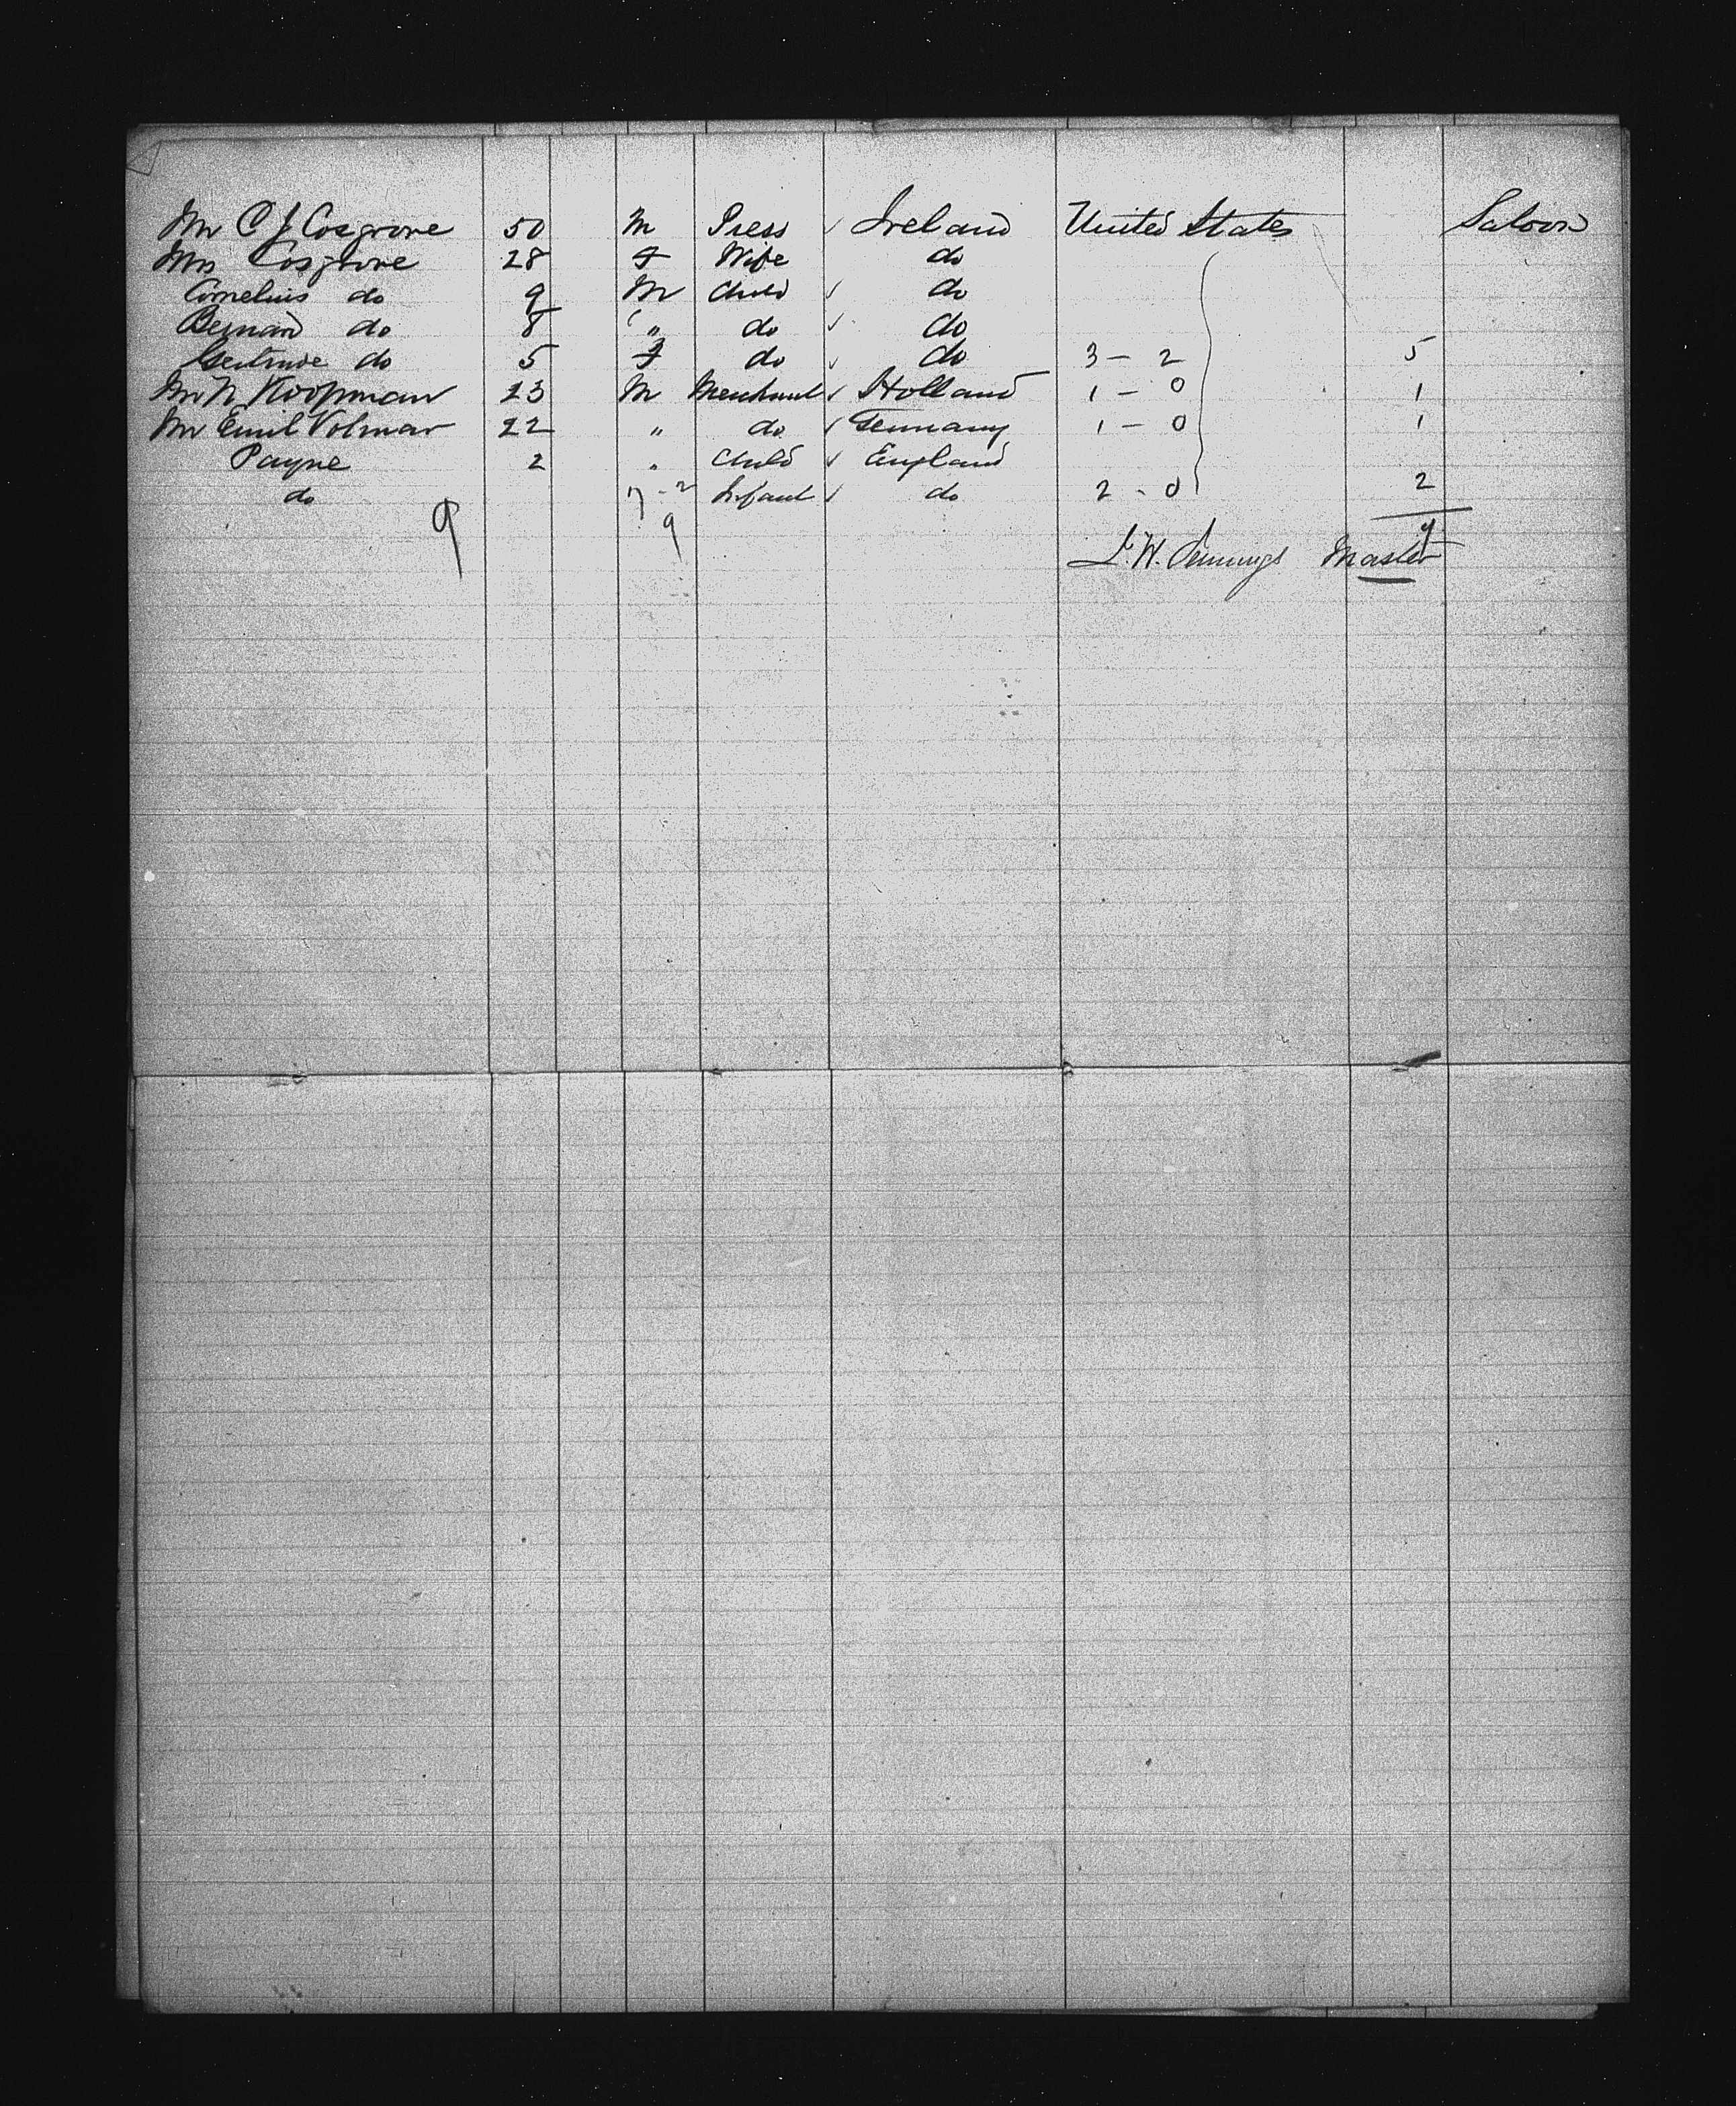 Mr C J Cosgrove 50 M Press ✓ Ireland United States Saloon
Mrs Cosgrove 28 F Wife do
Cornelius do 9 M Child ✓ do
Bernard do 8 " do ✓ do
Gertrude do 5 F do ✓ do 3 - 2 5
Mr N Koopman 23 M Merchant ✓ Holland 1 - 0 1
Mr Emil Volmar 22 " do ✓ Germany 1 - 0 1
Payne 2 " Child ✓ England
do 7 - 2 Infant ✓ do 2 - 0 2
9 9 9
L. W. Jennings Master